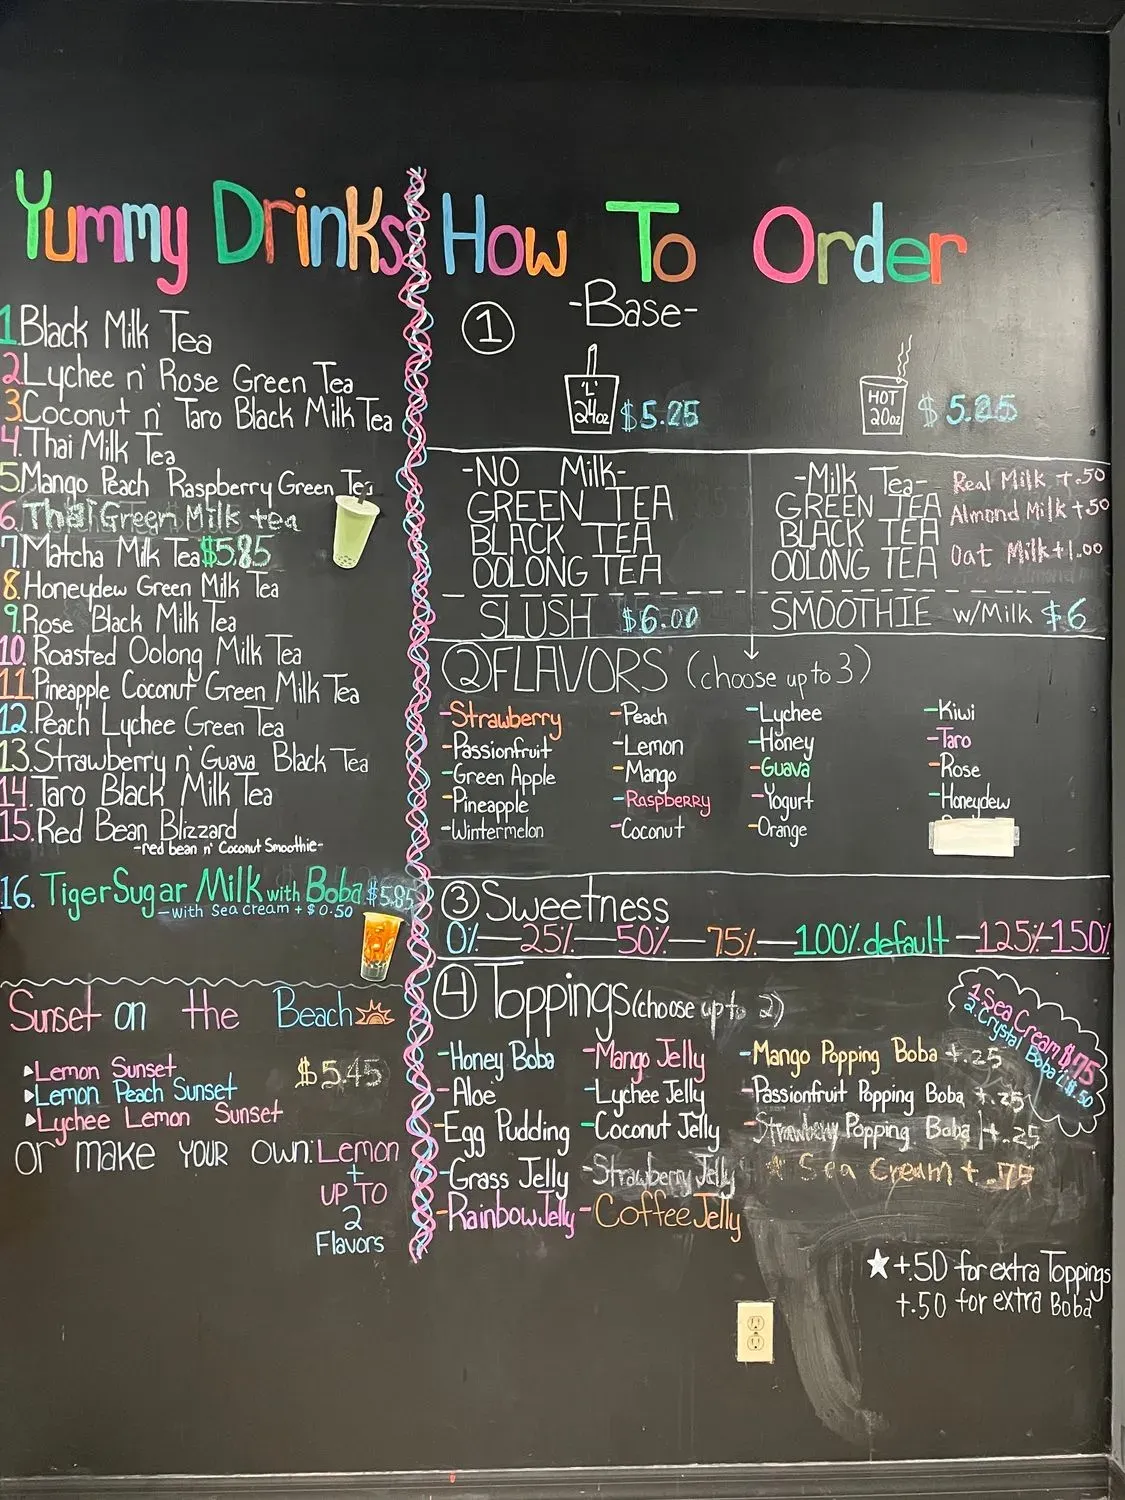 Yummy Drinks
1. Black Milk Tea
2. Lychee n' Rose Green Tea
3. Coconut n' Taro Black Milk Tea
4. Thai Milk Tea
5. Mango Peach Raspberry Green Tea
6. Thai Green Milk tea
7. Matcha Milk Tea $5.85
8. Honeydew Green Milk Tea
9. Rose Black Milk Tea
10. Roasted Oolong Milk Tea
11. Pineapple Coconut Green Milk Tea
12. Peach Lychee Green Tea
13. Strawberry n' Guava Black Tea
14. Taro Black Milk Tea
15. Red Bean Blizzard
-red bean n' Coconut Smoothie-
16. Tiger Sugar Milk with Boba $5.85
-with Sea cream + $0.50
Sunset on the Beach
Lemon Sunset
Lemon Peach Sunset
Lychee Lemon Sunset
$5.45
or make YOUR OWN: Lemon
+
UP TO
2
Flavors
How To Order
1 -Base-
'L' 24oz $5.25
HOT 20oz $5.25
-NO Milk-
GREEN TEA
BLACK TEA
OOLONG TEA
SLUSH $6.00
-Milk Tea-
GREEN TEA
BLACK TEA
OOLONG TEA
Real Milk +.50
Almond Milk +.50
Oat Milk +1.00
SMOOTHIE w/Milk $6
2 FLAVORS (choose up to 3)
-Strawberry
-Passionfruit
-Green Apple
-Pineapple
-Wintermelon
-Peach
-Lemon
-Mango
-Raspberry
-Coconut
-Lychee
-Honey
-Guava
-Yogurt
-Orange
-Kiwi
-Taro
-Rose
-Honeydew
3 Sweetness
0%-25%-50%-75%-100% default-125%-150%
4 Toppings (choose up to 2)
-Honey Boba
-Aloe
-Egg Pudding
-Grass Jelly
-Rainbow Jelly
-Mango Jelly
-Lychee Jelly
-Coconut Jelly
-Strawberry Jelly
-Coffee Jelly
-Mango Popping Boba +.25
-Passionfruit Popping Boba +.25
-Strawberry Popping Boba +.25
Sea Cream +.75
1. Sea Cream $.75
2. Crystal Boba $.50
★ +.50 for extra Toppings
+.50 for extra Boba